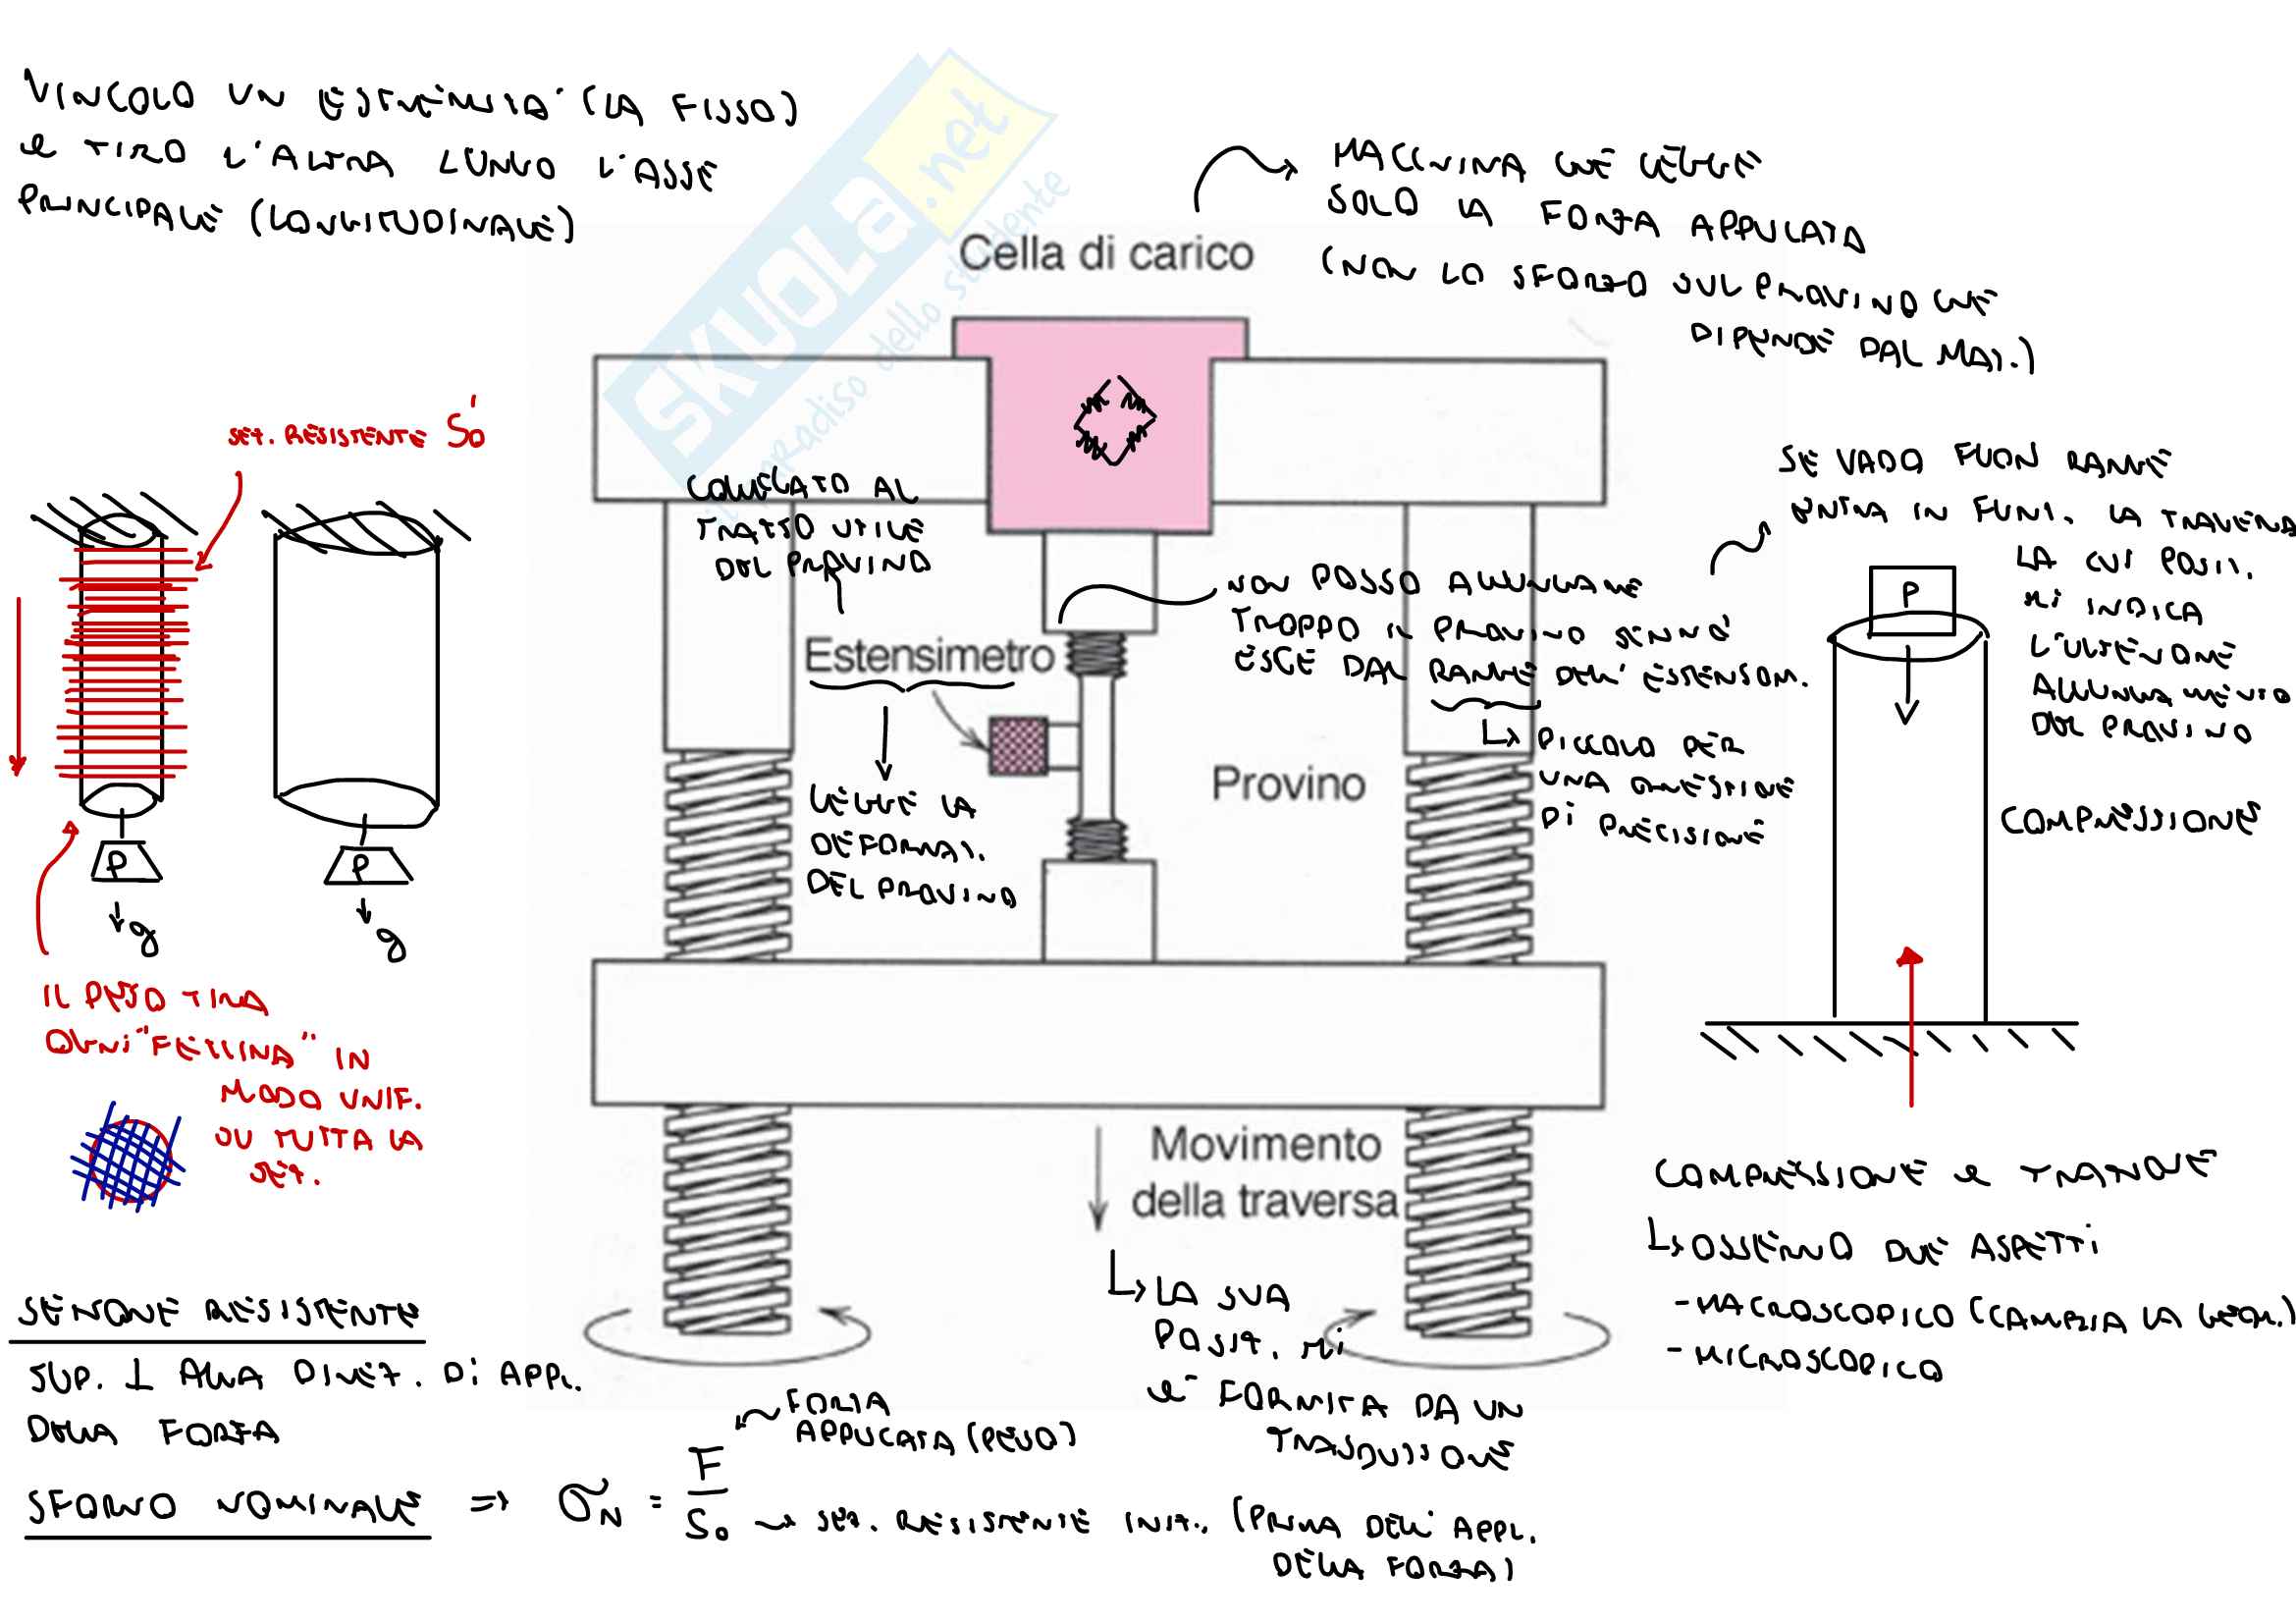 VINCOLO UN ESTREMITA' (LA FISSO)
e TIRO L'ALTRA LUNGO L'ASSE
PRINCIPALE (LONGITUDINALE)
SKUOLA.net
il paradiso dello studente
MACCHINA CHE LEGGE
SOLO LA FORZA APPLICATA
(NON LO SFORZO SUL PROVINO CHE
DIPENDE DAL MAT.)
Cella di carico
SEZ. RESISTENTE S₀'
COLLEGATO AL
TRATTO UTILE
DEL PROVINO
Estensimetro
LEGGE LA
DEFORMAZ.
DEL PROVINO
NON POSSO ALLUNGARE
TROPPO IL PROVINO SENNO'
ESCE DAL RANGE DELL' ESTENSOM.
PICCOLO PER
UNA QUESTIONE
DI PRECISIONE
Provino
SE VADO FUORI RANGE
ENTRA IN FUNZ. LA TRAVERSA
LA CUI POSIZ.
MI INDICA
L'ULTERIORE
ALLUNGAMENTO
DEL PROVINO
P
COMPRESSIONE
P
P
g
g
IL PESO TIRA
OGNI "FETTINA" IN
MODO UNIF.
SU TUTTA LA
SEZ.
Movimento
della traversa
LA SUA
POSIZ. MI
e' FORNITA DA UN
TRASDUTTORE
COMPRESSIONE e TRAZIONE
OSSERVO DUE ASPETTI
- MACROSCOPICO (CAMBIA LA GEOM.)
- MICROSCOPICO
SEZIONE RESISTENTE
SUP. ⊥ ALLA DIREZ. DI APPL.
DELLA FORZA
FORZA
APPLICATA (PESO)
SFORZO NOMINALE => σN = F/S₀ → SEZ. RESISTENTE INIZ. (PRIMA DELL' APPL.
DELLA FORZA)